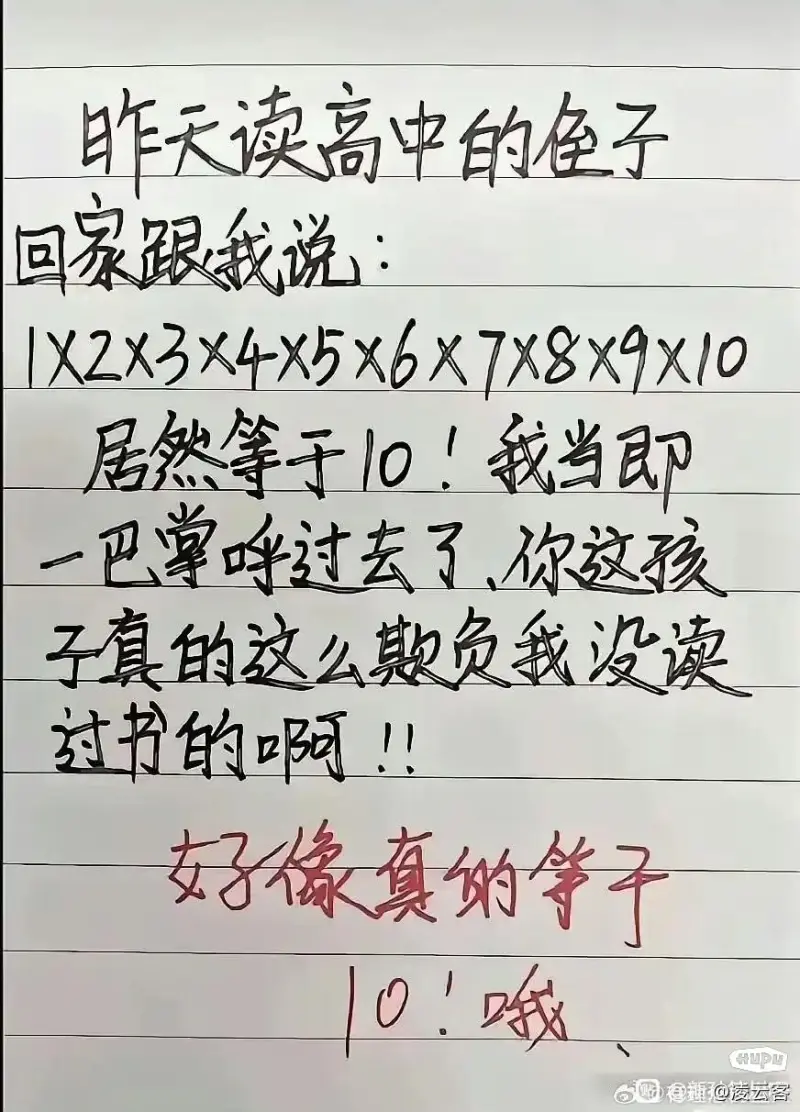 昨天读高中的侄子
回家跟我说：
1×2×3×4×5×6×7×8×9×10
居然等于10！我当即
一巴掌呼过去了、你这孩
子真的这么欺负我没读
过书的啊！！
好像真的等于
10！哦、
HUPU
@凌云客